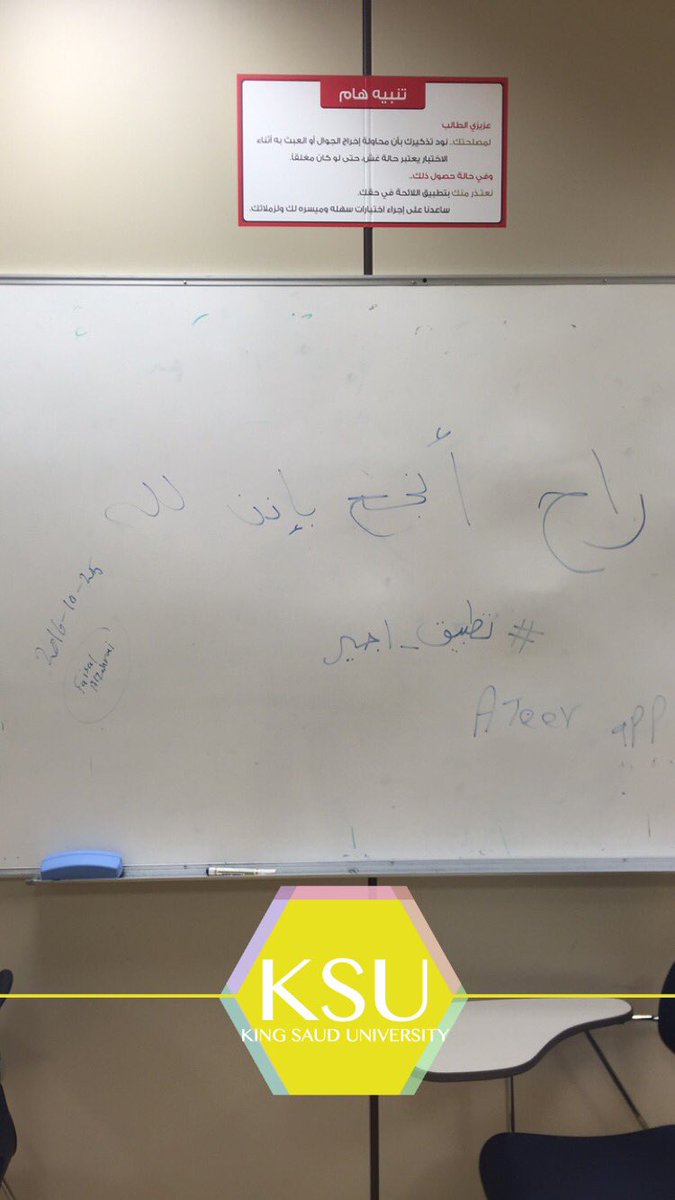 تنبيه هام
عزيزي الطالب
لمصلحتك.. نود تذكيرك بأن محاولة إخراج الجوال أو العبث به أثناء
الاختبار يعتبر حالة غش، حتى لو كان مغلقاً.
وفي حالة حصول ذلك..
نعتذر منك بتطبيق اللائحة في حقك.
ساعدنا على إجراء اختبارات سهله وميسره لك ولزملائك.
راح أنجح بإذن لله
#تطبيق_اجير
AJeer app
2016-10-25
Faisal
KSU
KING SAUD UNIVERSITY